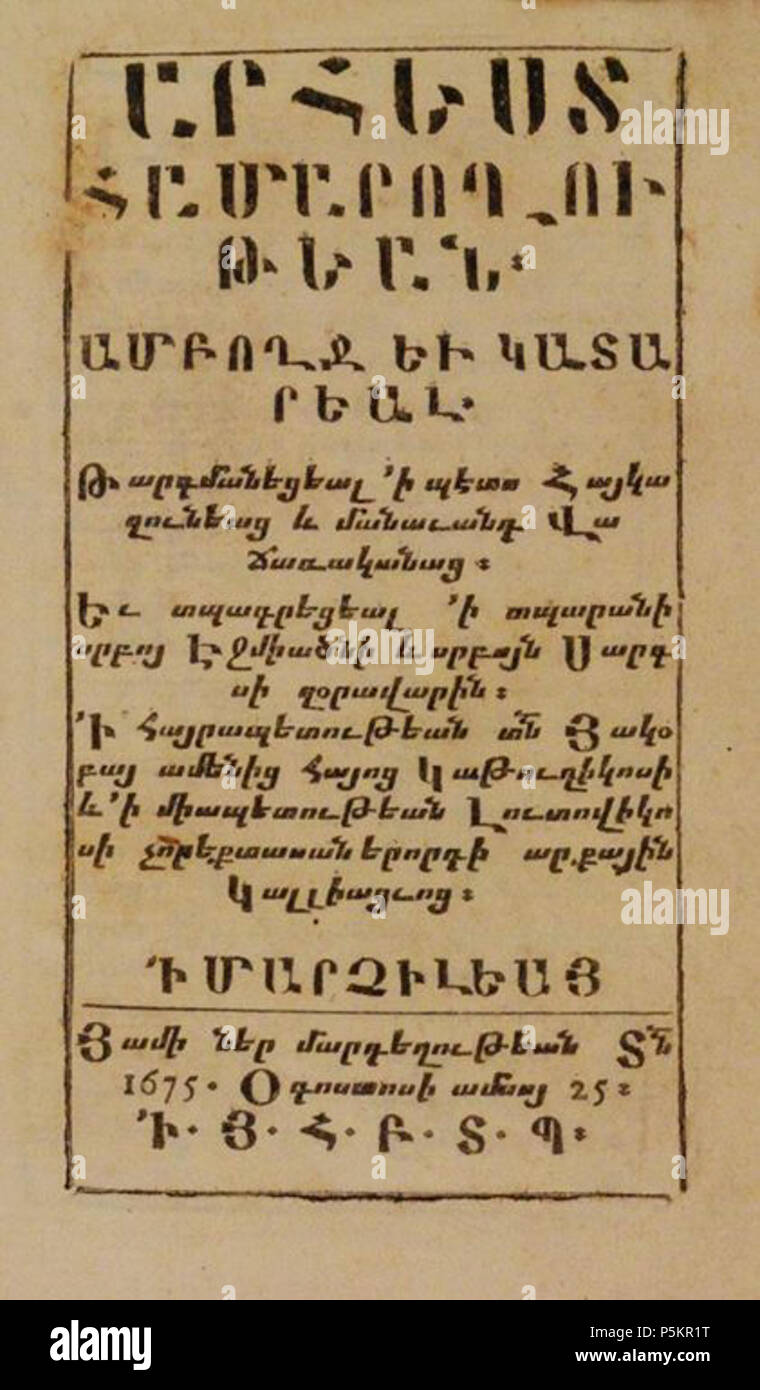 ԱՐՀԵՍՏ
ՀԱՄԱՐՈՂՈՒ
ԹԵԱՆ։
ԱՄԲՈՂՋ ԵՒ ԿԱՏԱ
ՐԵԱԼ·
Թարգմանեցեալ ՚ի պէտս Հայկա
զունեաց և մանաւանդ Վա
ճառականաց։
Եւ տպագրեցեալ ՚ի տպարանի
սրբոյ Էջմիածնի և սրբոյն Սարգ
սի զօրավարին։
՚Ի հայրապետութեան տն Յակօ
բայ ամենից հայոց Կաթուղիկոսի
և ՚ի միապետութեան Լուտովիկո
սի չորեքտասաներորդի արքային
Կալլիացւոց։
՚Ի ՄԱՐՉԻԼԵԱՅ
Յամի ներ մարդեղութեան Տն
1675· Օգոստոսի ամսոյ 25։
՚Ի· Յ· Հ· Բ· Տ· Պ։
alamy
Image ID: P5KR1T
www.alamy.com